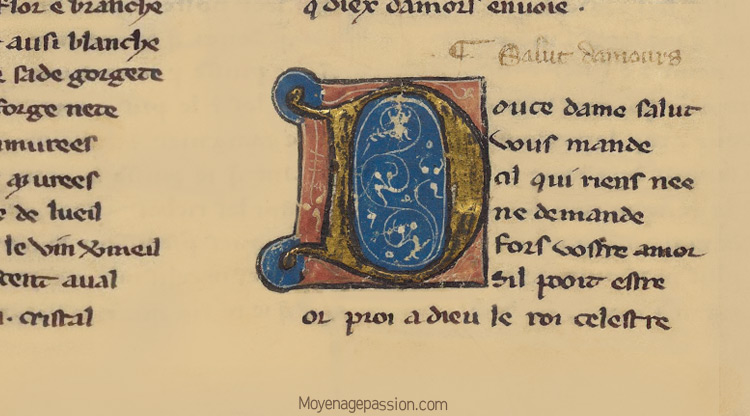 flor e blanche
ausi blanche
sade gorgete
forge nete
murees
azurees
de lueil
le vin vermeil
dent aual
cristal
q̃ diex damors enuoie ·
¶ Salut damours
Douce dame salut
vous mande
cil qui riens nee
ne demande
fors vostre amor
sil pooit estre
or proi a dieu le roi celestre
Moyenagepassion.com